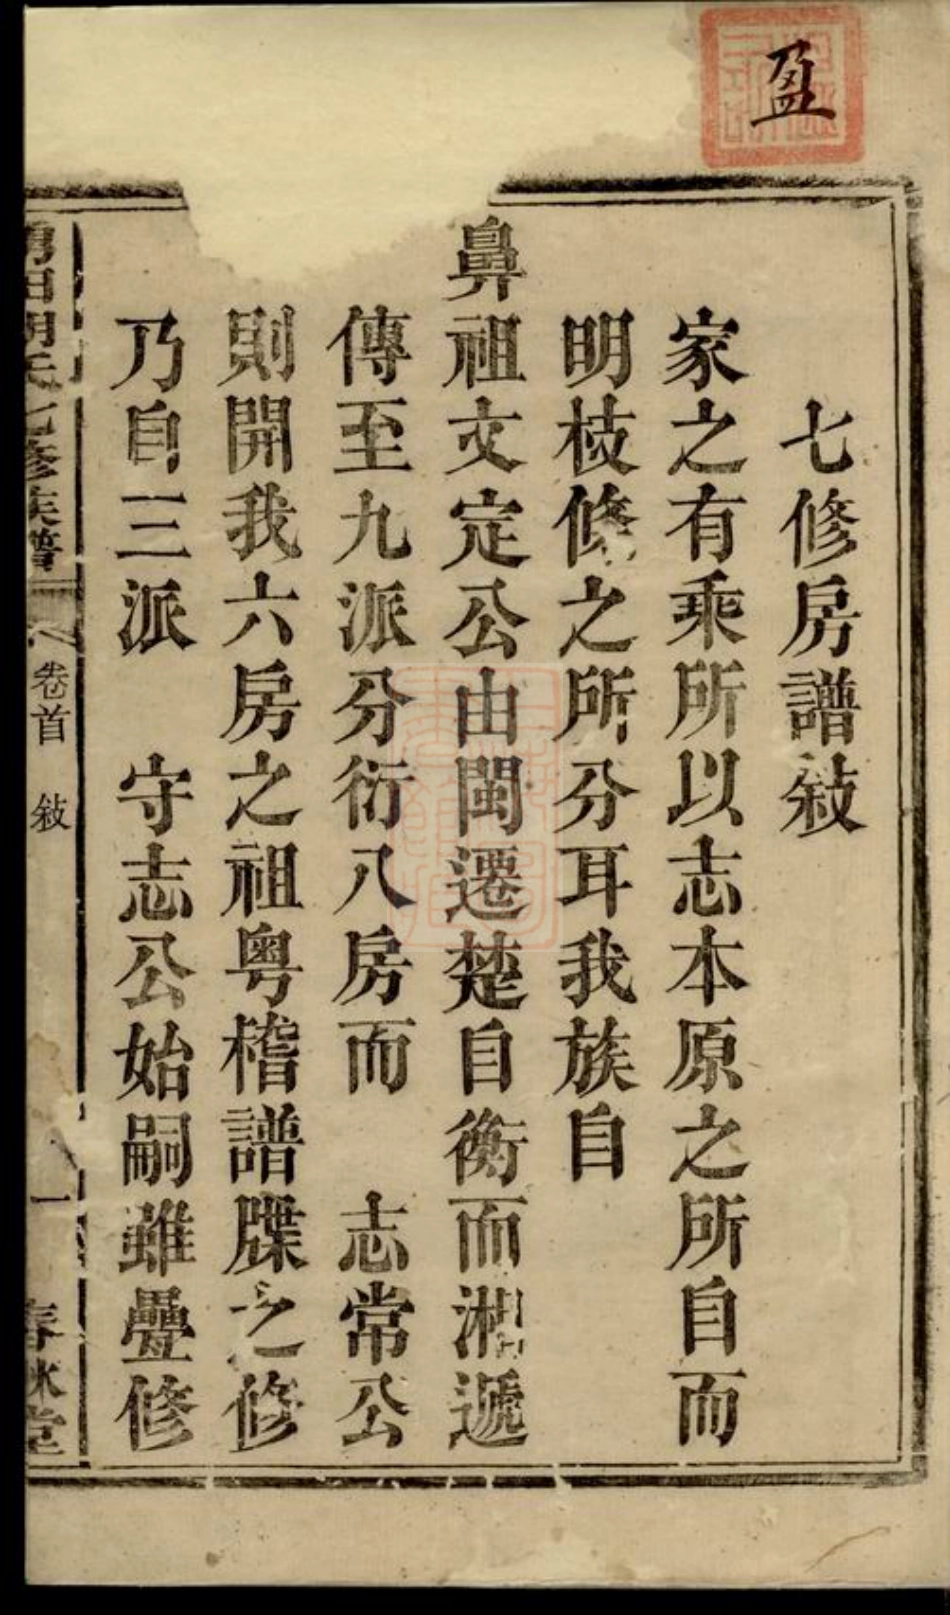 盈
七修房譜敍
家之有乘所以志本原之所自而
明枝修之所分耳我族自
鼻祖文定公由閩遷楚自衡而湘遞
傳至九派分衍八房而　志常公
則開我六房之祖粵稽譜牒之修
乃自三派　守志公始嗣雖疊修
胡氏七修族譜　卷首　敍　一